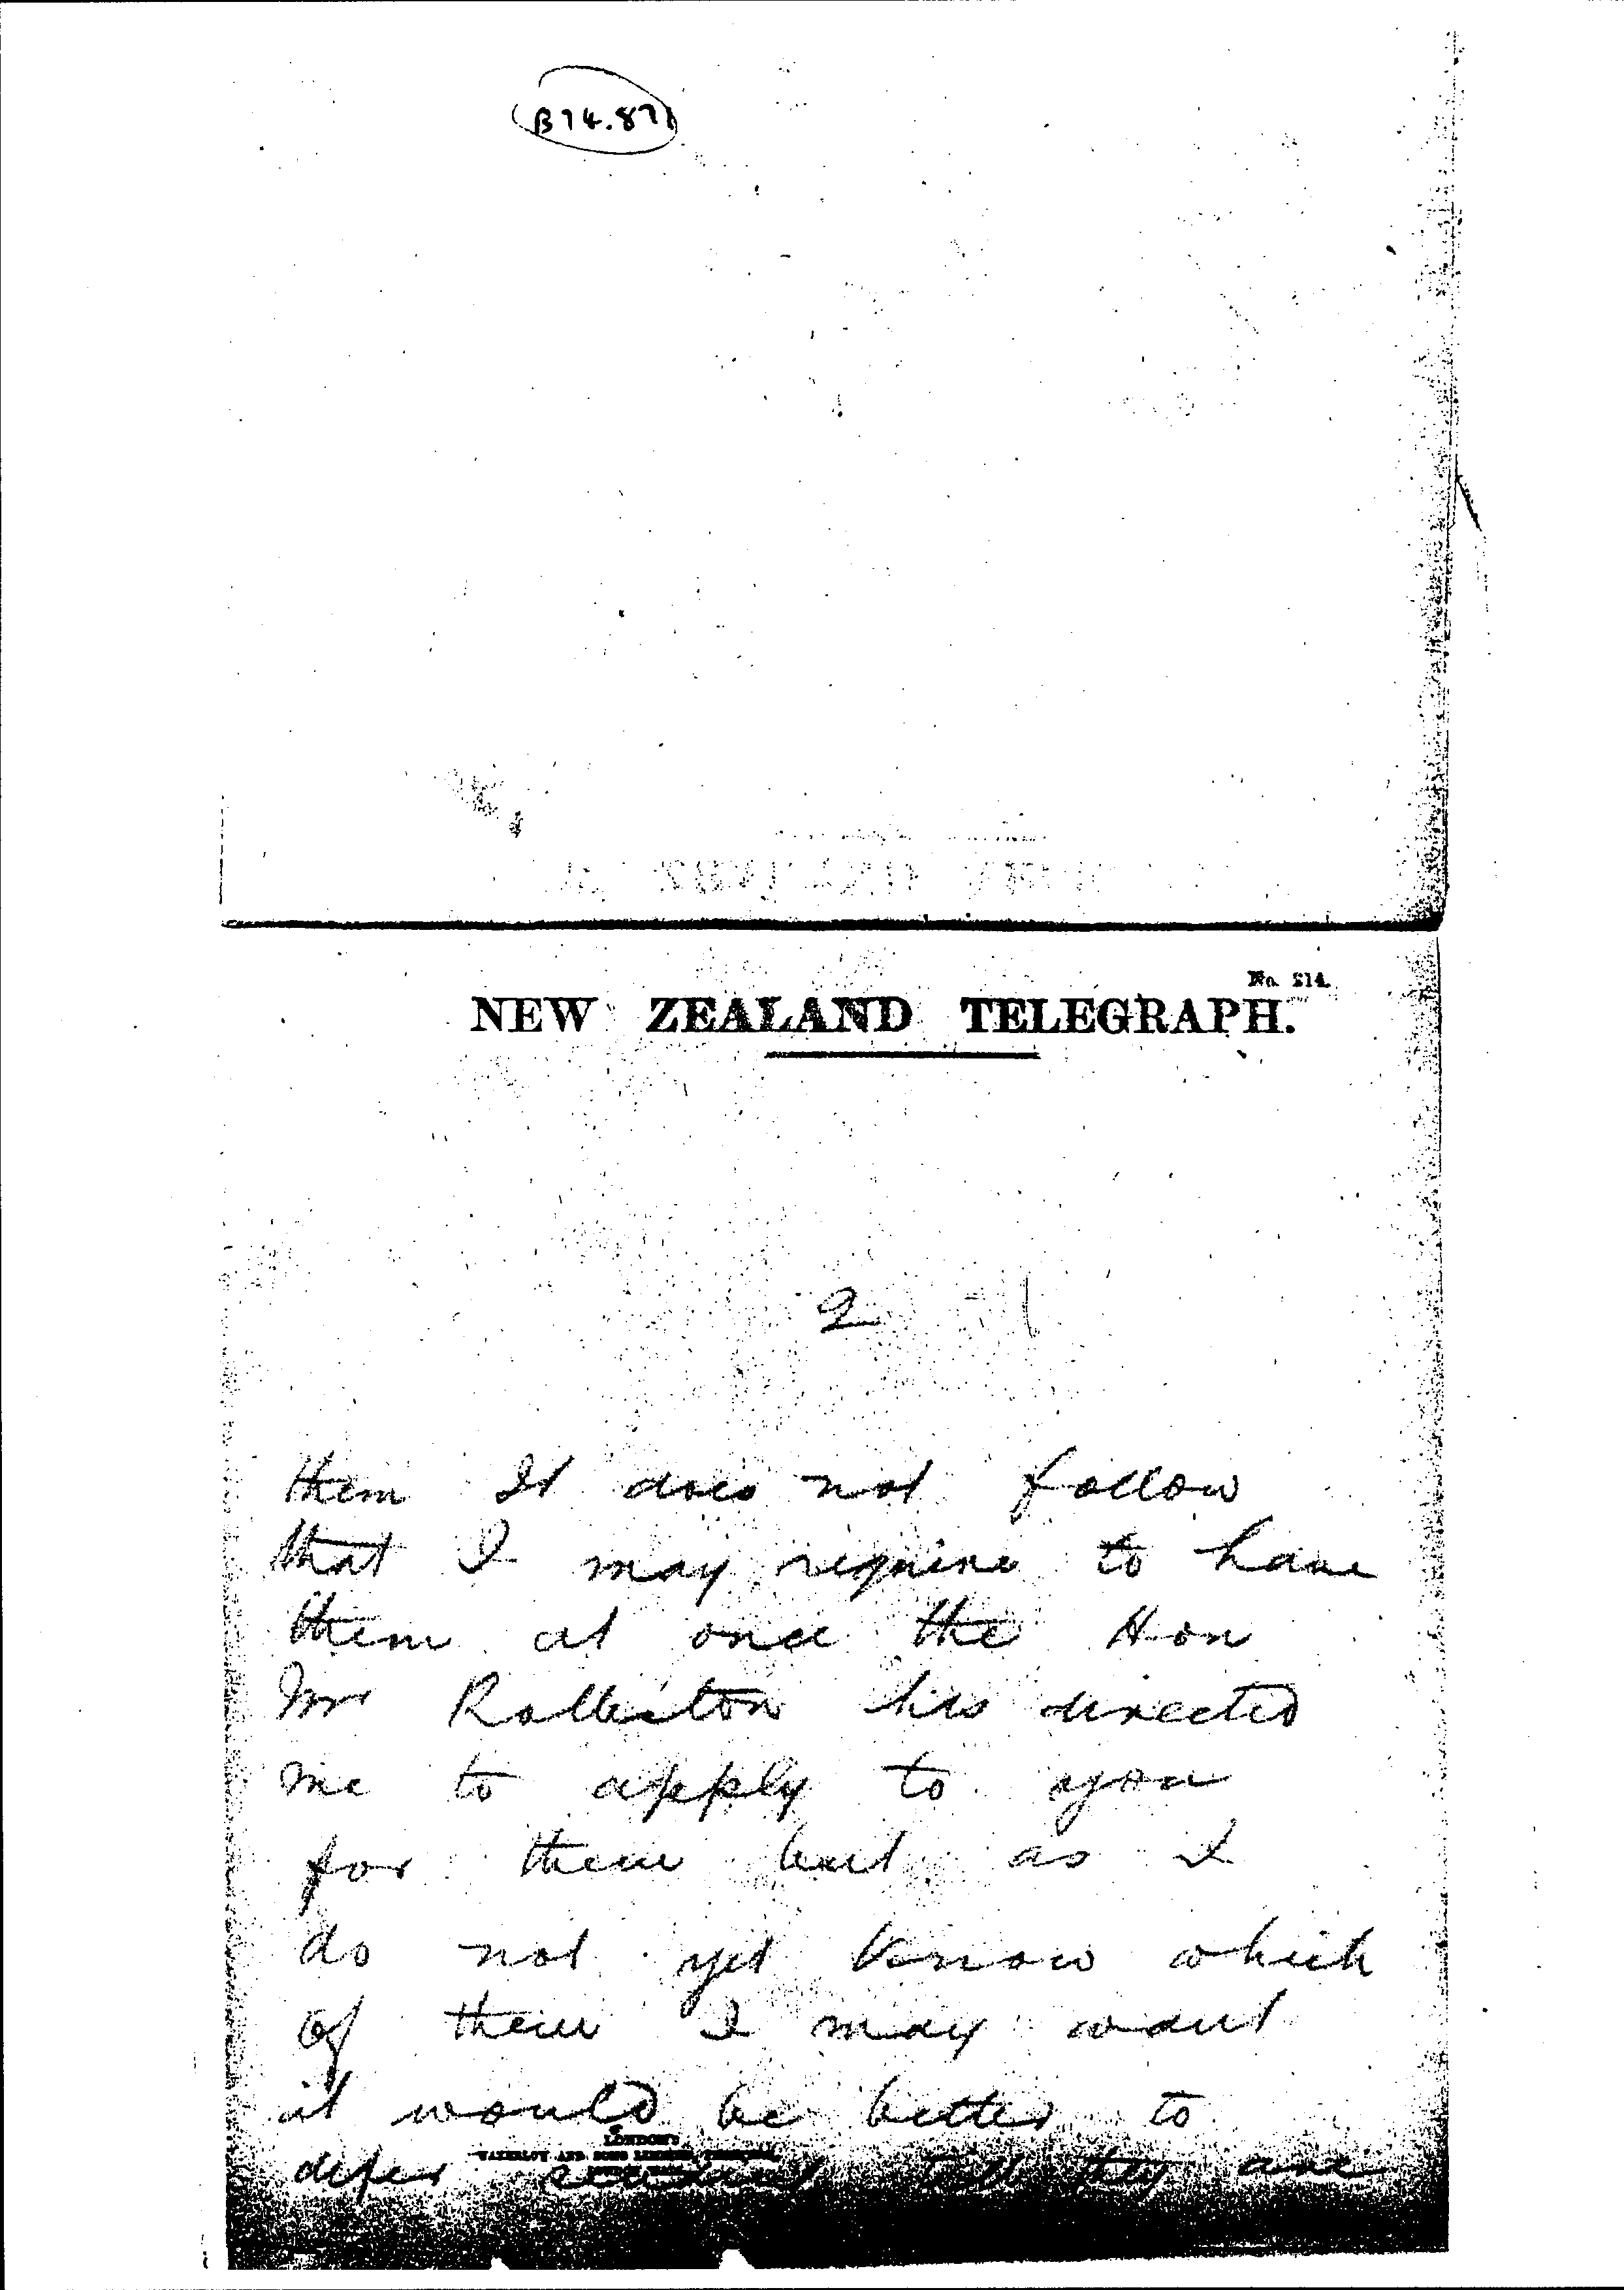 B74.871
No. 214.
NEW ZEALAND TELEGRAPH.
2
them It does not follow
that I may require to have
them at once the Hon
Mr Rolleston has directed
me to apply to you
for them but as I
do not yet know which
of them I may want
it would be better to
LONDON
defer sending till they are